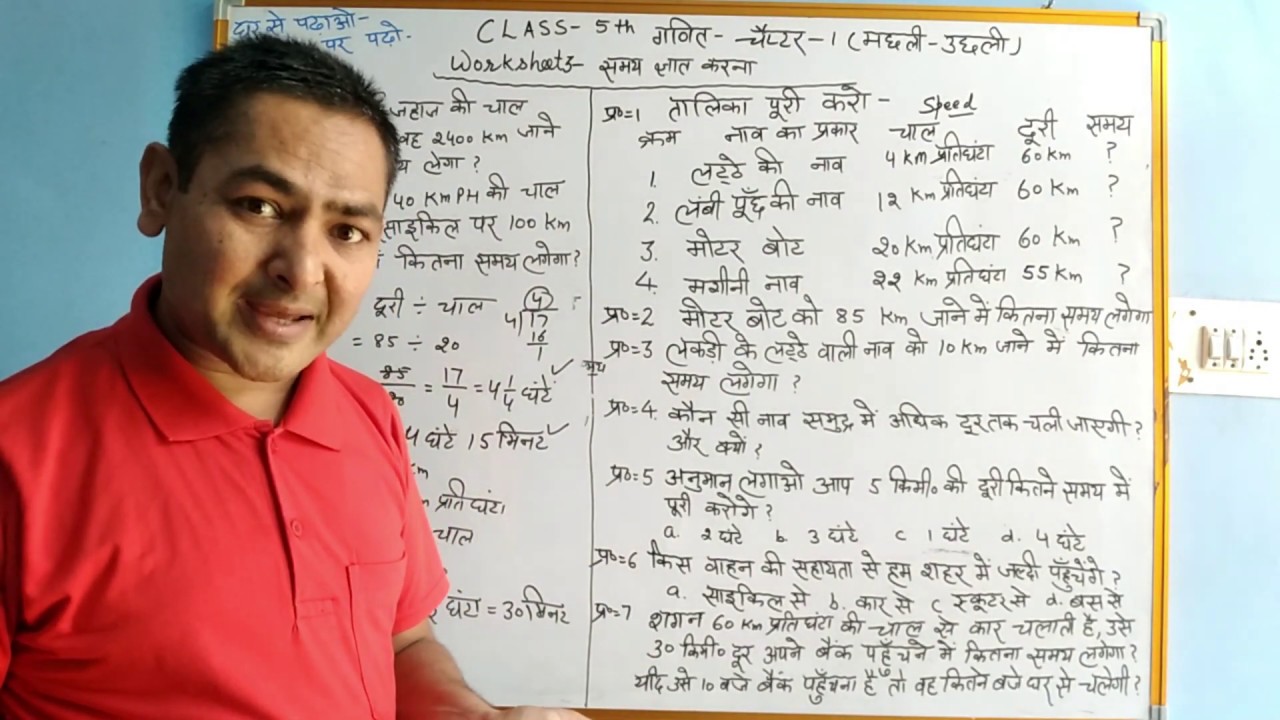 दूर से पढाओ-
पर पढ़ो.
CLASS- 5th गणित- चैप्टर-1 (मछली-उछली)
Worksheet3- समय ज्ञात करना
जहाज की चाल
वह 2400 Km जाने
य लेगा ?
40 KmPH की चाल
साइकिल पर 100 Km
कितना समय लगेगा?
दूरी ÷ चाल
= 85 ÷ 20
4
4 17
16
1
85/20 = 17/4 = 4 1/4 घंटे ✓
4 घंटे 15 मिनट ✓
Km
प्रति घंटा
चाल
घंटा = 30 मिनट
प्र०=1 तालिका पूरी करो - Speed
क्रम नाव का प्रकार चाल दूरी समय
1. लट्ठे की नाव 4 Km प्रतिघंटा 60 Km ?
2. लंबी पूँछ की नाव 12 Km प्रतिघंटा 60 Km ?
3. मोटर बोट 20 Km प्रतिघंटा 60 Km ?
4. मशीनी नाव 22 Km प्रतिघंटा 55 Km ?
प्र०=2 मोटर बोट को 85 Km जाने में कितना समय लगेगा
प्र०=3 लकड़ी के लट्ठे वाली नाव को 10 Km जाने में कितना
समय लगेगा ?
प्र०=4. कौन सी नाव समुद्र में अधिक दूर तक चली जाएगी ?
और क्यों ?
प्र०=5 अनुमान लगाओ आप 5 किमी० की दूरी कितने समय में
पूरी करोगे ?
a. 2 घंटे b. 3 घंटे c 1 घंटे d. 4 घंटे
प्र०=6 किस वाहन की सहायता से हम शहर में जल्दी पहुँचेंगे ?
a. साइकिल से b. कार से c स्कूटर से d. बस से
प्र०=7 शगन 60 Km प्रतिघंटा की चाल से कार चलाती है, उसे
30 किमी० दूर अपने बैंक पहुँचने में कितना समय लगेगा?
यदि उसे 10 बजे बैंक पहुँचना है तो वह कितने बजे घर से चलेगी ?